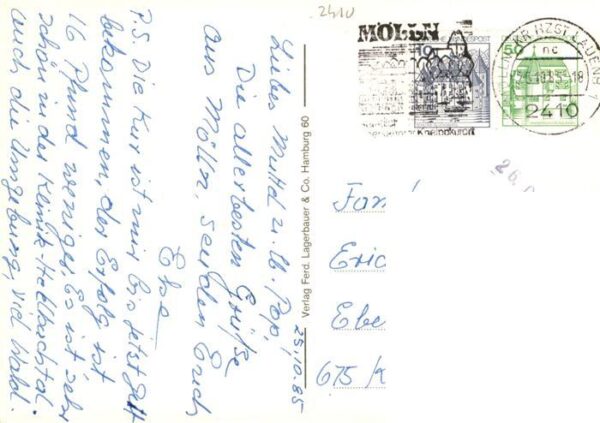 25.10.85
Liebes Muttel u. lb. Pep,
Die allerbesten Grüße
aus Mölln, senden Euch
Else
P.S. Die Kur ist mir bis jetzt gut
bekommen, der Erfolg ist
16 Pfund weniger. Es ist sehr
schön in der Klinik-Hellbachtal
auch die Umgebung, viel Wald.
Verlag Ferd. Lagerbauer & Co. Hamburg 60
2410
MÖLLN
Kneippkurort
10
50
KR HZGT LAUENB
nc
-18
2410
26.
Fam
Eric
Ebe
675 K